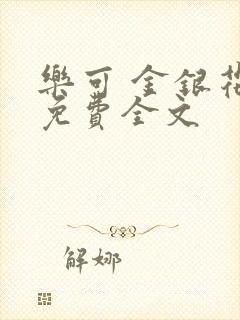 樂可 金銀花
免費全文
解娜